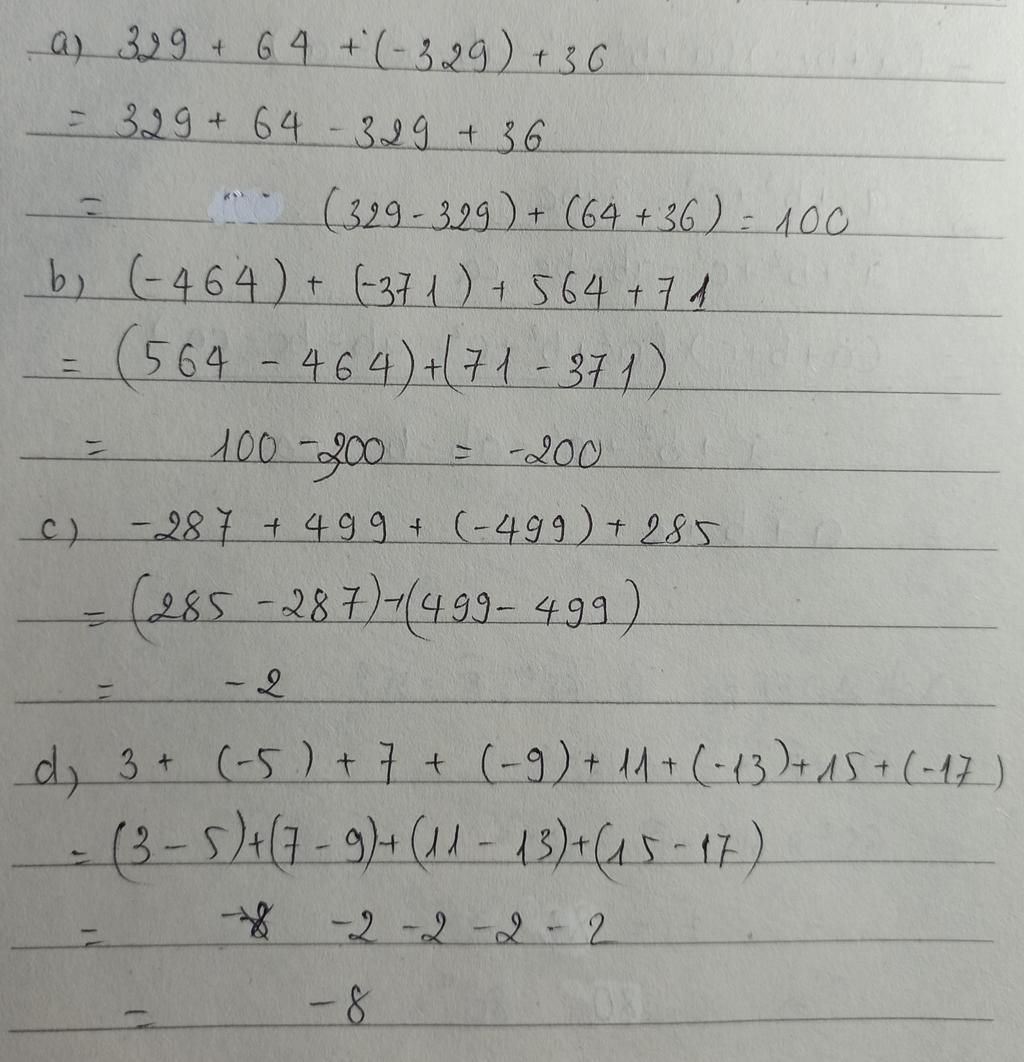 a) 329 + 64 + (-329) + 36
= 329 + 64 - 329 + 36
= (329 - 329) + (64 + 36) = 100
b) (-464) + (-371) + 564 + 71
= (564 - 464) + (71 - 371)
= 100 - 300 = -200
c) -287 + 499 + (-499) + 285
= (285 - 287) + (499 - 499)
= -2
d) 3 + (-5) + 7 + (-9) + 11 + (-13) + 15 + (-17)
= (3 - 5) + (7 - 9) + (11 - 13) + (15 - 17)
= -2 -2 -2 -2
= -8